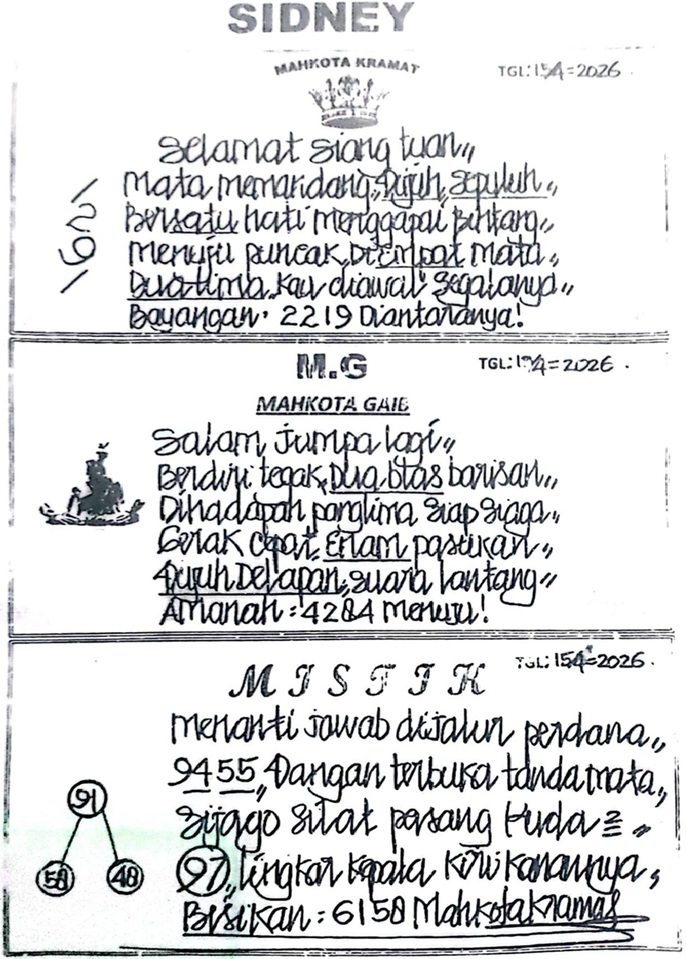 SIDNEY
MAHKOTA KRAMAT
TGL: 154=2026
Selamat siang tuan,,
Mata memandang, Tujuh, sepuluh,,
Bersatu hati menggapai Bintang,,
menuju puncak, Diempat mata,,
Dua-lima, kau diawal segalanya,,
Bayangan: 2219 Diantaranya!
\629\
M.G
TGL: 154=2026
MAHKOTA GAIB
Salam jumpa lagi,,
Berdiri tegak, Dua blas barisan,,
Dihadapan panglima siap siaga,,
Gerak cepat, Enam pasukan,,
Tujuh Delapan, suara lantang,,
Amanah: 4284 menuju!
MISTIK
TGL: 154=2026
menanti jawab dijalur perdana,,
9455,, Dangan terbuka tanda mata,,
Sijago silat pasang kuda 2,,
97,, lingkar kepala kiri kanannya,
91
58 48
Bisikan: 6158 Mahkota kramat